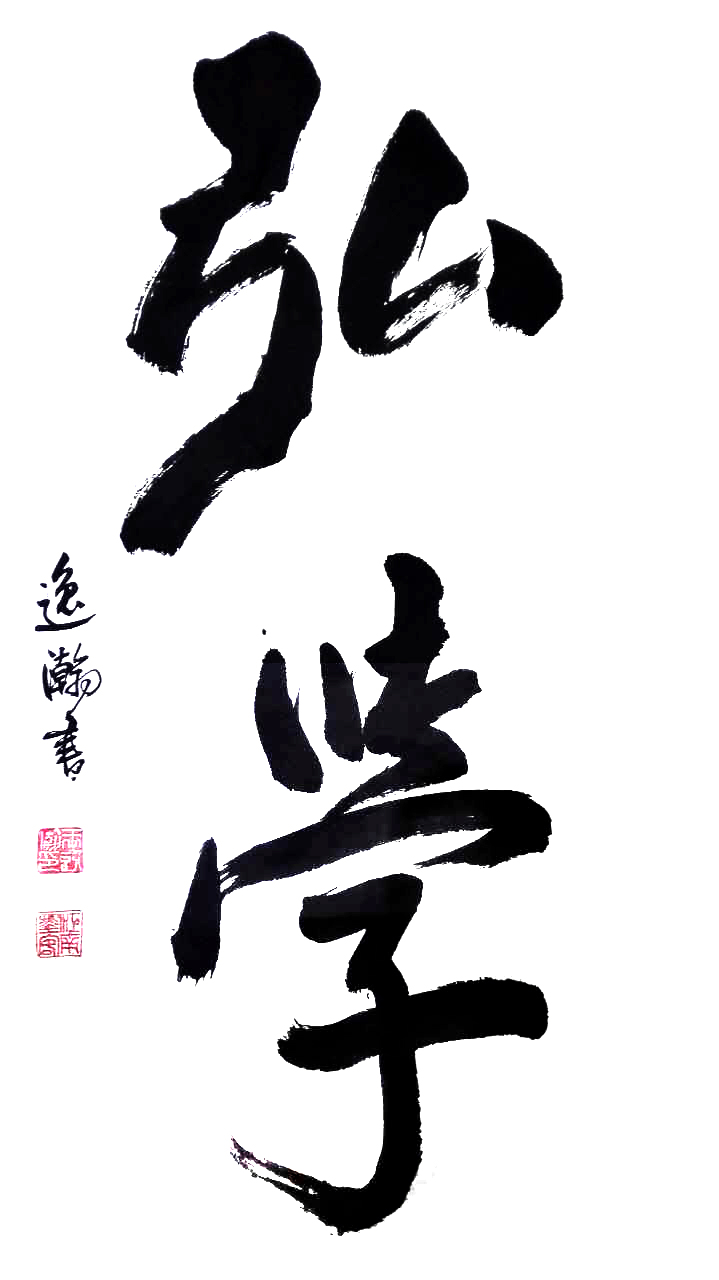 弘学
逸瀚书